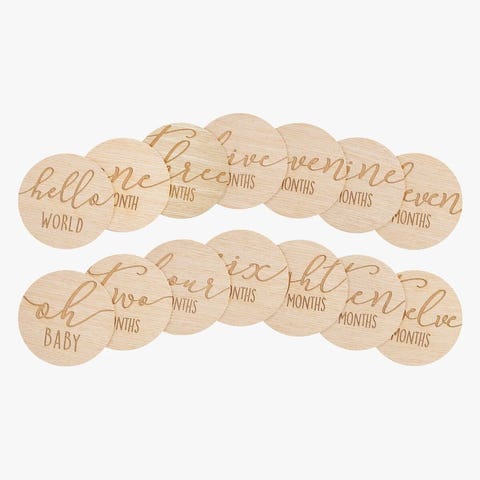 hello
WORLD
ne
ONTH
three
ONTHS
ive
MONTHS
even
MONTHS
ine
MONTHS
leven
MONTHS
oh
BABY
Two
ONTHS
our
ONTHS
ix
MONTHS
ght
MONTHS
Ten
MONTHS
Twelve
MONTHS